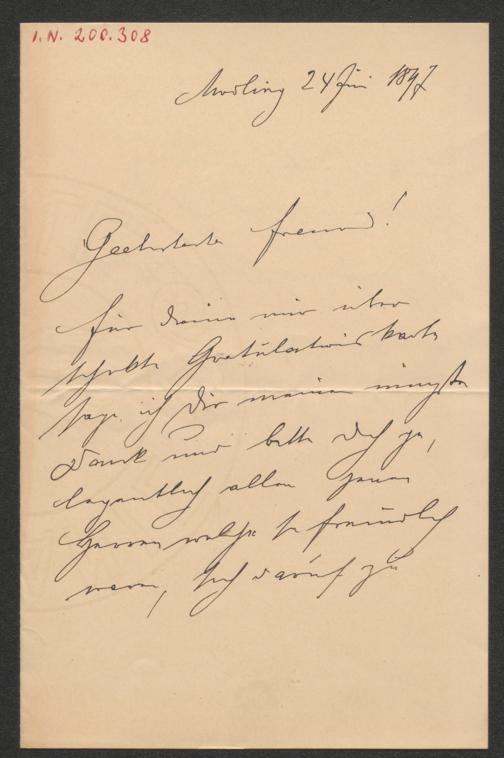 I. N. 200.308
Mödling 24 Juni 1897
Geehrtester Freund!
Für Deine mir über
schickte Gratulationskarte
sage ich Dir meinen innigsten
Dank und bitte Dich ge,
legentlich allen jenen
Herren welche so freundlich
waren, sich darauf zu